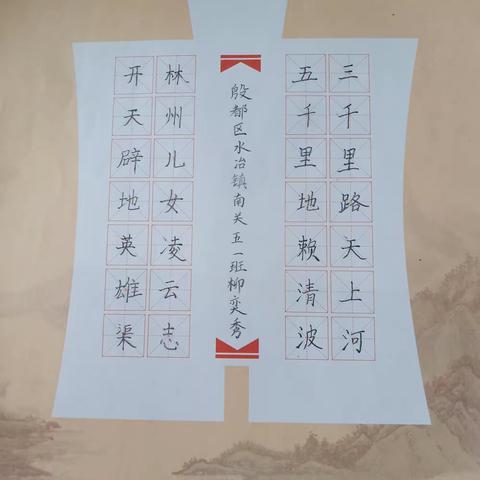 三千里路天上河
五千里地赖清波
殷都区水冶镇南关五一班柳奕秀
林州儿女凌云志
开天辟地英雄渠